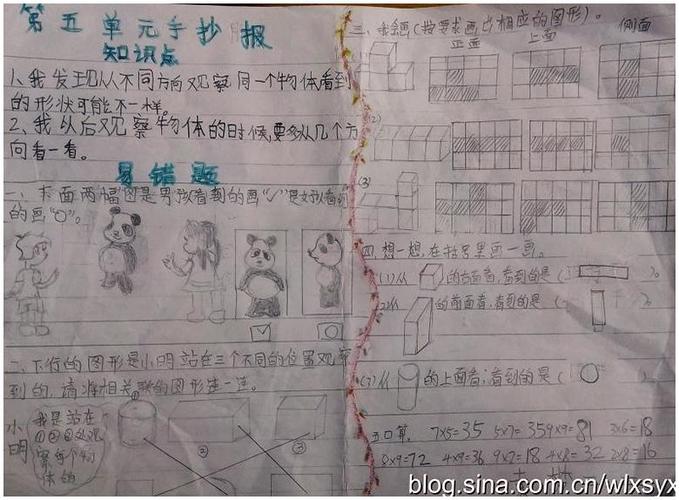 第五单元手抄报
知识点
1、我发现从不同方向观察同一个物体看到
的形状可能不一样。
2、我以后观察物体的时候,要多从几个方
向看一看。
易错题
一、下面两幅图是男孩看到的画“✓”是女孩看到
的画“O”。
二、下行的图形是小明站在三个不同的位置观察
到的,请将相关联的图形连一连。
小明
我是站在
①②③处观
察每个物
体的
①
②
③
三、我会画(按要求画出相应的图形)。
正面 上面 侧面
(2)
(3)
四、想一想,在括号里画一画。
(1)从 的右面看,看到的是( )。
(2)从 的前面看,看到的是( )。
(3)从 的上面看,看到的是( )。
五、口算。 7×5=35 5×7=35 9×9=81 3×6=18
8×9=72 4×9=36 9×2=18 4×8=32 2×8=16
blog.sina.com.cn/wlxsyx